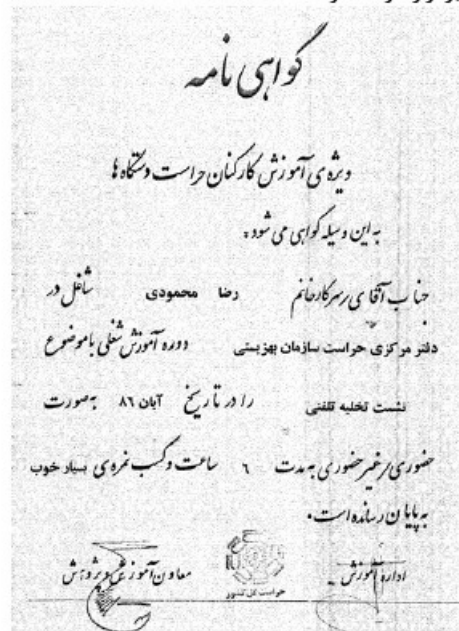 گواهی نامه
ویژه‌ی آموزش کارکنان حراست دستگاه ها
به این وسیله گواهی می شود:
جناب آقای/سرکارخانم رضا محمودی شاغل در
دفتر مرکزی حراست سازمان بهزیستی دوره آموزش شغلی با موضوع
نشست تخلیه تلفنی را در تاریخ آبان ۸۶ بصورت
حضوری/غیرحضوری به مدت ۶ ساعت و کسب نمره‌ی بسیار خوب
به پایان رسانده است.
اداره آموزش
معاون آموزش و پژوهش
حراست کل کشور